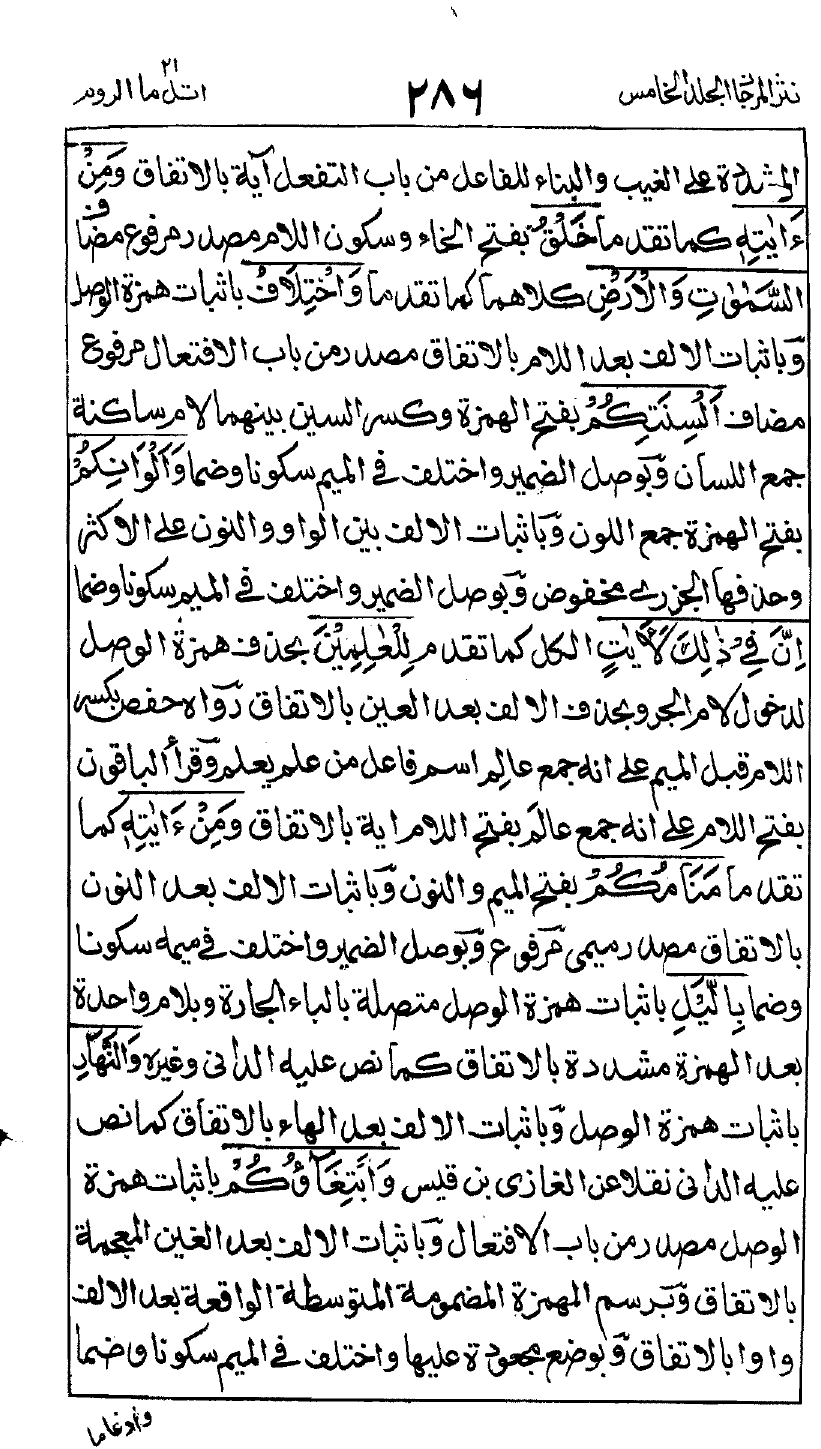 نثر المرجان المجلد الخامس
٢٨٦
اتل ما الروم
٢١
المشددة على الغيب والبناء للفاعل من باب التفعل آية بالاتفاق وَمِنْ
ءَايٰتِهٖ كما تقدم ما خَلْقُ بفتح الخاء وسكون اللام مصدر مرفوع مضاف
السَّمٰوٰتِ وَالْاَرْضِ كلاهما كما تقدما وَاخْتِلَافُ باثبات همزة الوصل
وباثبات الالف بعد اللام بالاتفاق مصدر من باب الافتعال مرفوع
مضاف اَلْسِنَتِكُمْ بفتح الهمزة وكسر السين بينهما لام ساكنة
جمع اللسان وبوصل الضمير واختلف في الميم سكونا وضما وَاَلْوَانِكُمْ
بفتح الهمزة جمع اللون وباثبات الالف بين الواو والنون على الاكثر
وحذفها الجزرى مخفوض وبوصل الضمير واختلف في الميم سكونا وضما
اِنَّ فِيْ ذٰلِكَ لَاٰيٰتٍ الكل كما تقدم لِلْعٰلِمِيْنَ بحذف همزة الوصل
لدخول لام الجر وبحذف الالف بعد العين بالاتفاق رواه حفص بكسر
اللام قبل الميم على انه جمع عالِم اسم فاعل من علم يعلم وقرأ الباقون
بفتح اللام على انه جمع عالَم بفتح اللام اية بالاتفاق وَمِنْ ءَايٰتِهٖ كما
تقدم ما مَنَامُكُمْ بفتح الميم والنون وباثبات الالف بعد النون
بالاتفاق مصدر ميمى مرفوع وبوصل الضمير واختلف في ميمه سكونا
وضما بِالَّيْلِ باثبات همزة الوصل متصلة بالباء الجارة وبلام واحدة
بعد الهمزة مشددة بالاتفاق كما نص عليه الدانى وغيره وَالنَّهَارِ
باثبات همزة الوصل وباثبات الالف بعد الهاء بالاتفاق كما نص
عليه الدانى نقلا عن الغازى بن قيس وَابْتِغَآؤُكُمْ باثبات همزة
الوصل مصدر من باب الافتعال وباثبات الالف بعد الغين المعجمة
بالاتفاق وبرسم الهمزة المضمومة المتوسطة الواقعة بعد الالف
واوا بالاتفاق وبوضع مجعودة عليها واختلف في الميم سكونا وضما
وادغاما